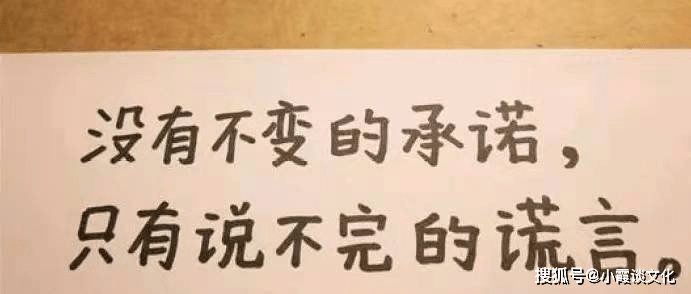 没有不变的承诺，
只有说不完的谎言。
搜狐号@小霞谈文化